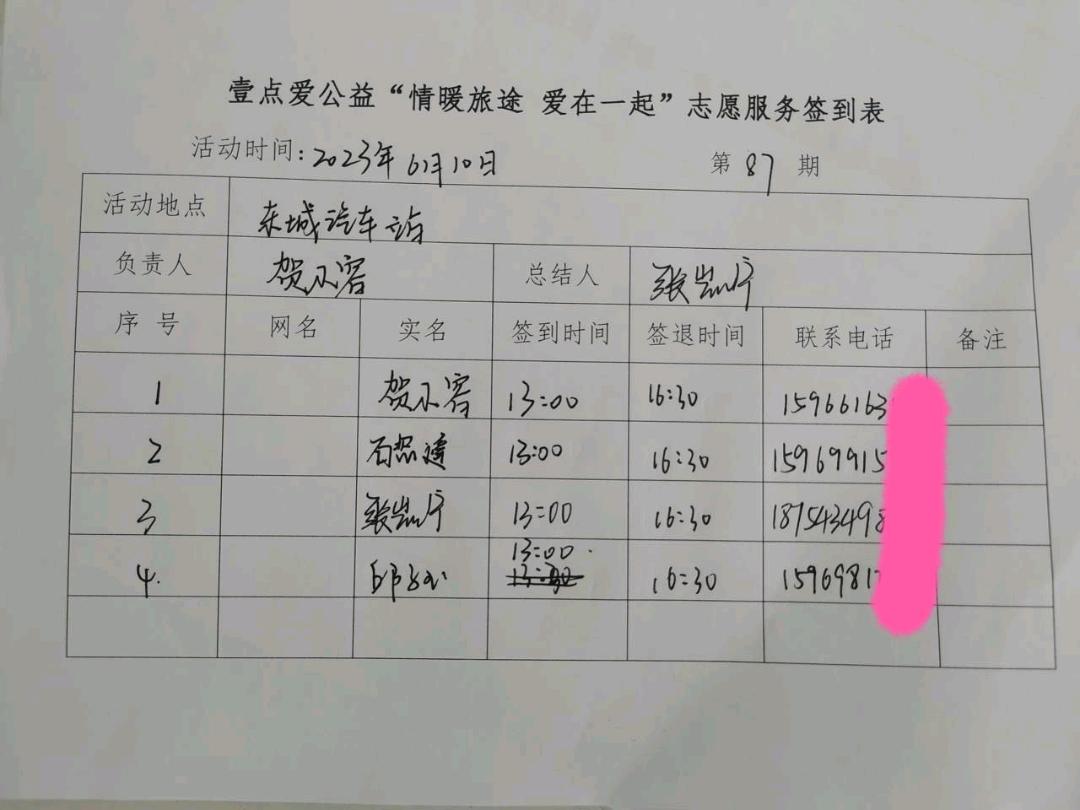 壹点爱公益“情暖旅途 爱在一起”志愿服务签到表
活动时间:2023年6月10日 第87期
活动地点 东城汽车站
负责人 贺小容 总结人
序号 网名 实名 签到时间 签退时间 联系电话 备注
1 贺小容 13:00 16:30 15966163
2 13:00 16:30 15969915
3 13:00 16:30 187543498
4. 13:00 16:30 1596981